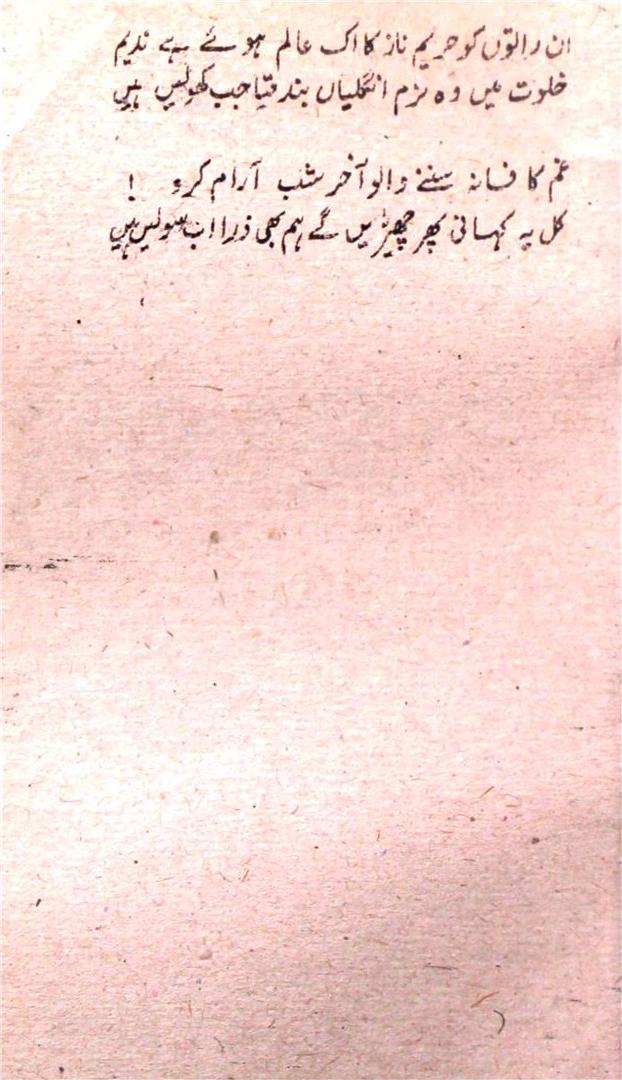 ان راتوں کو حریم ناز کا اک عالم ہوئے ہے ندیم
خلوت میں وہ نرم انگلیاں بند قبا جب کھولیں ہیں
غم کا فسانہ سننے والو آخر شب آرام کرو !
کل یہ کہانی پھر چھیڑیں گے ہم بھی ذرا اب سولیں ہیں